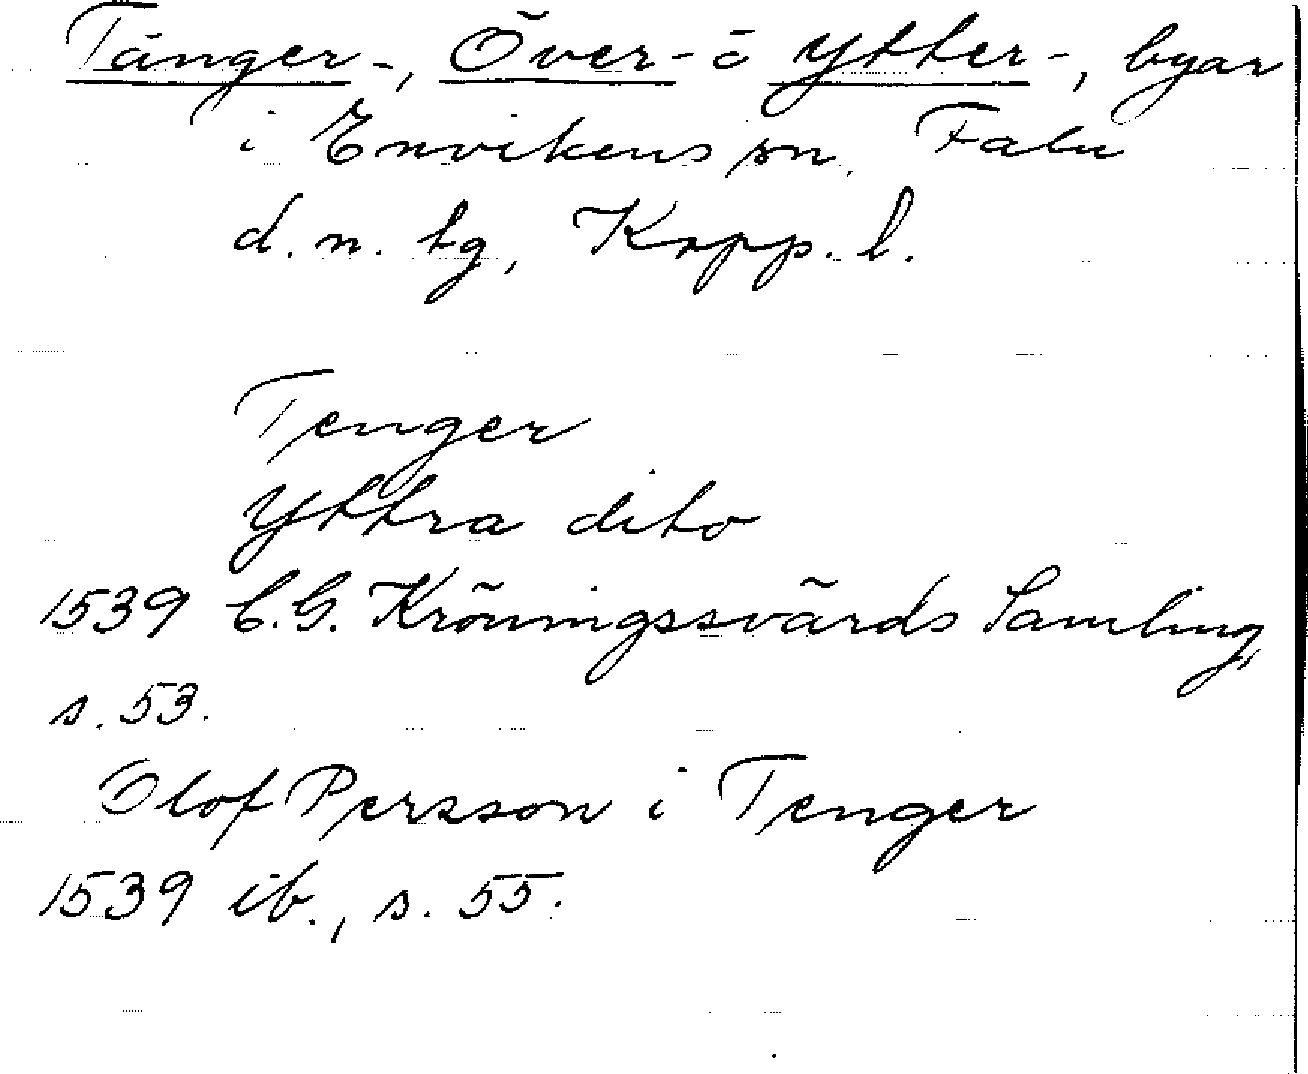 Tänger-, Över- o Ytter-, byar
i Envikens sn, Falu
d. n. tg, Kopp. l.
Tenger
Yttra dito
1539 C.G. Kröningssvärds Samling,
s. 53.
Olof Persson i Tenger
1539 ib., s. 55.